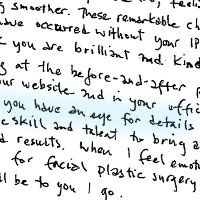 smoother. These remarkable ch
have occurred without your
you are brilliant and kind
at the before-and-after
our website and in your offic
you have an eye for details
skill and talent to bring a
results. When I feel emot
for facial plastic surgery
be to you I go.